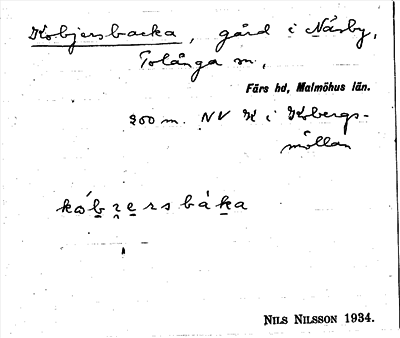 Kobjersbacka, gård i Näsby,
Tolånga sn,
Färs hd, Malmöhus län.
200 m. NV K i Kobergs-
möllan
NILS NILSSON 1934.